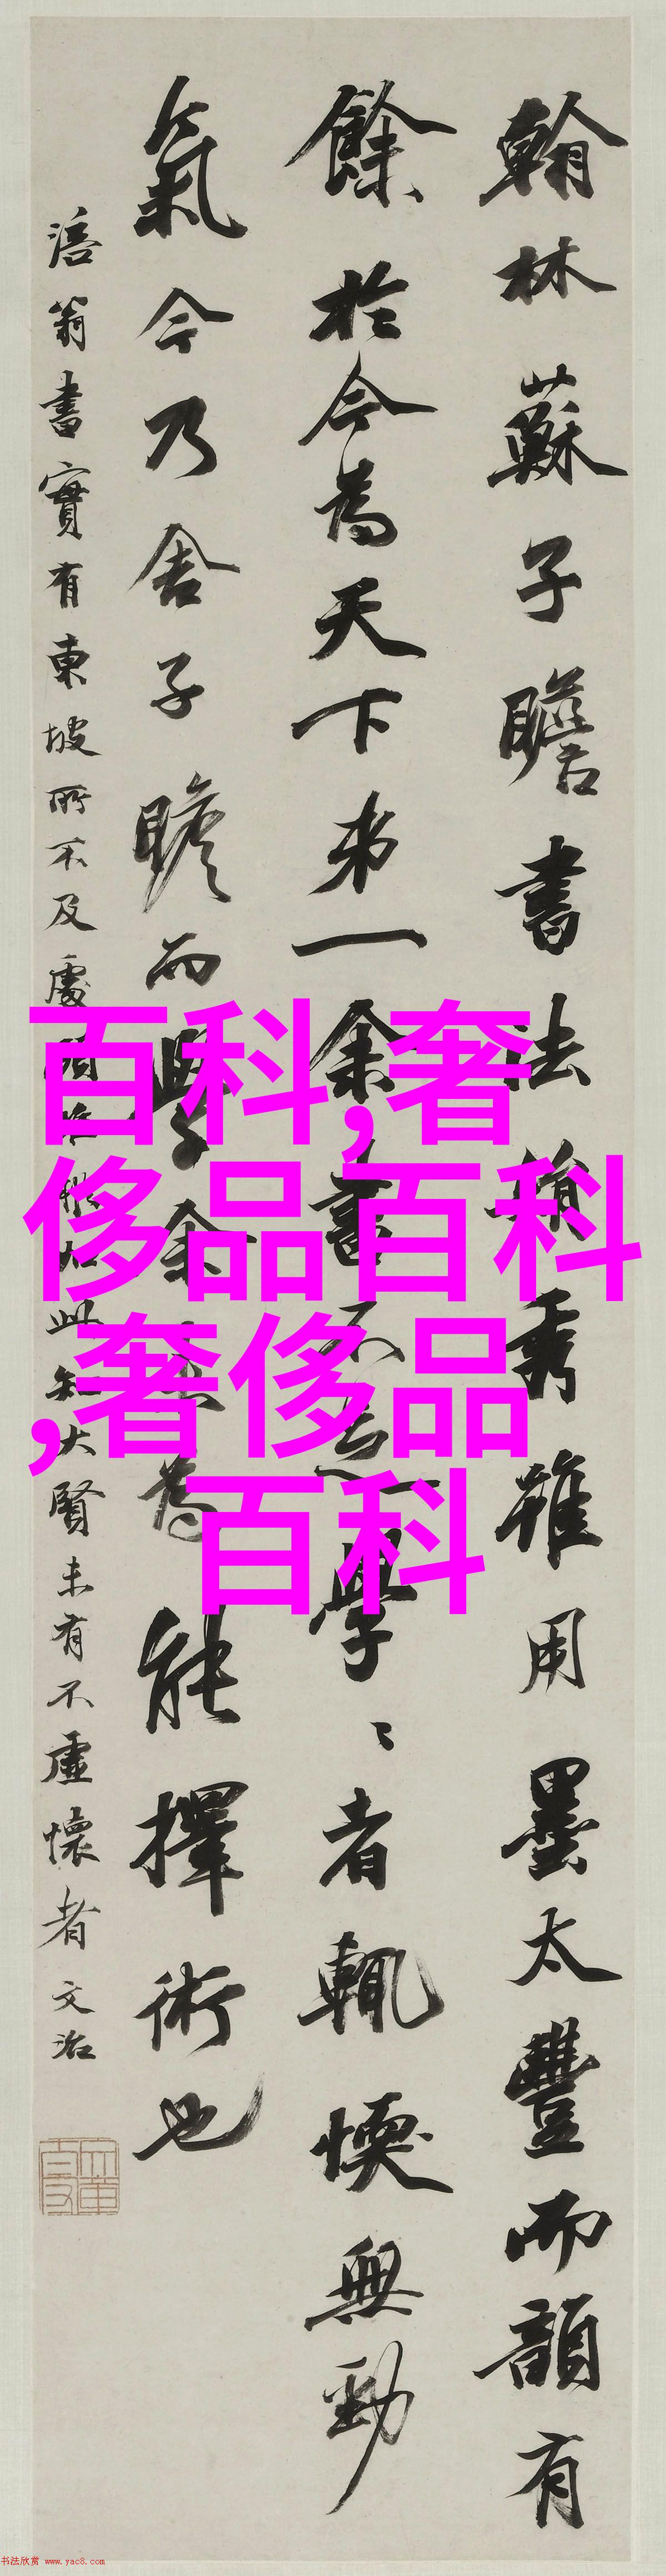 翰林蘇子瞻書法娟秀雖用墨太豐而韻有
餘於今為天下第一余書不足學〻者輒愞無勁
氣今乃舍子瞻而學余未為能擇術也
涪翁書實有東坡所不及處如此知大賢未有不虛懷者文治
百科,奢
侈品百科
,奢侈品
百科
书法欣赏 www.yac8.com